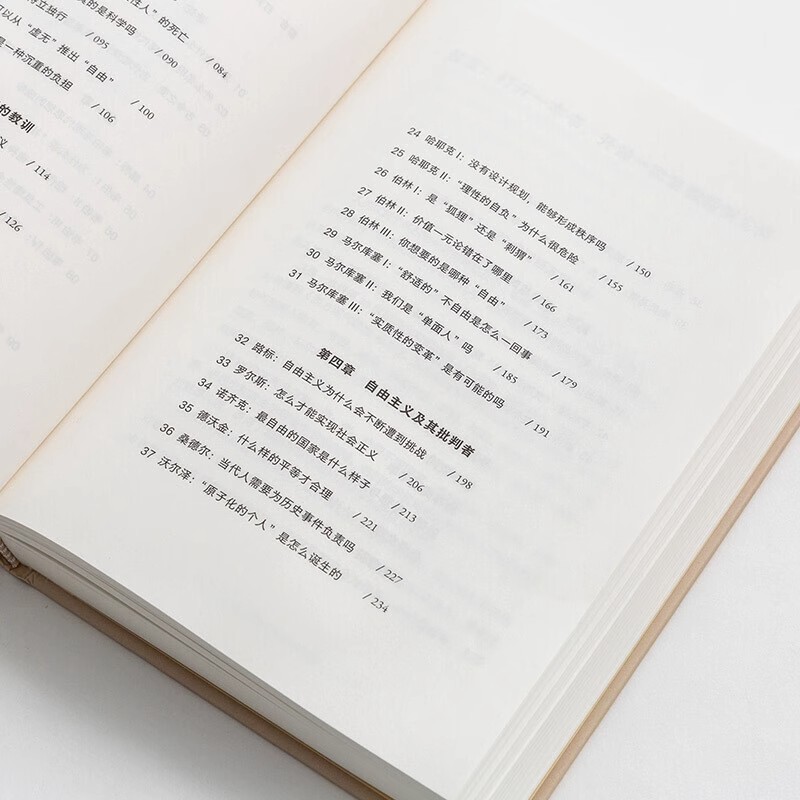 特立独行
/ 095
真的是科学吗
/ 090
性人”的死亡
/ 084
可以从“虚无”推出“自由”
/ 100
是一种沉重的负担
/ 106
的教训
义
/ 114
/ 126
24 哈耶克 I：没有设计规划，能够形成秩序吗 / 150
25 哈耶克 II：“理性的自负”为什么很危险 / 155
26 伯林 I：是“狐狸”还是“刺猬” / 161
27 伯林 II：价值一元论错在了哪里 / 166
28 伯林 III：你想要的是哪种“自由” / 173
29 马尔库塞 I：“舒适的”不自由是怎么一回事 / 179
30 马尔库塞 II：我们是“单面人”吗 / 185
31 马尔库塞 III：“实质性的变革”是有可能的吗 / 191
第四章 自由主义及其批判者
32 路标：自由主义为什么会不断遭到挑战 / 198
33 罗尔斯：怎么才能实现社会正义 / 206
34 诺齐克：最自由的国家是什么样子 / 213
35 德沃金：什么样的平等才合理 / 221
36 桑德尔：当代人需要为历史事件负责吗 / 227
37 沃尔泽：“原子化的个人”是怎么诞生的 / 234